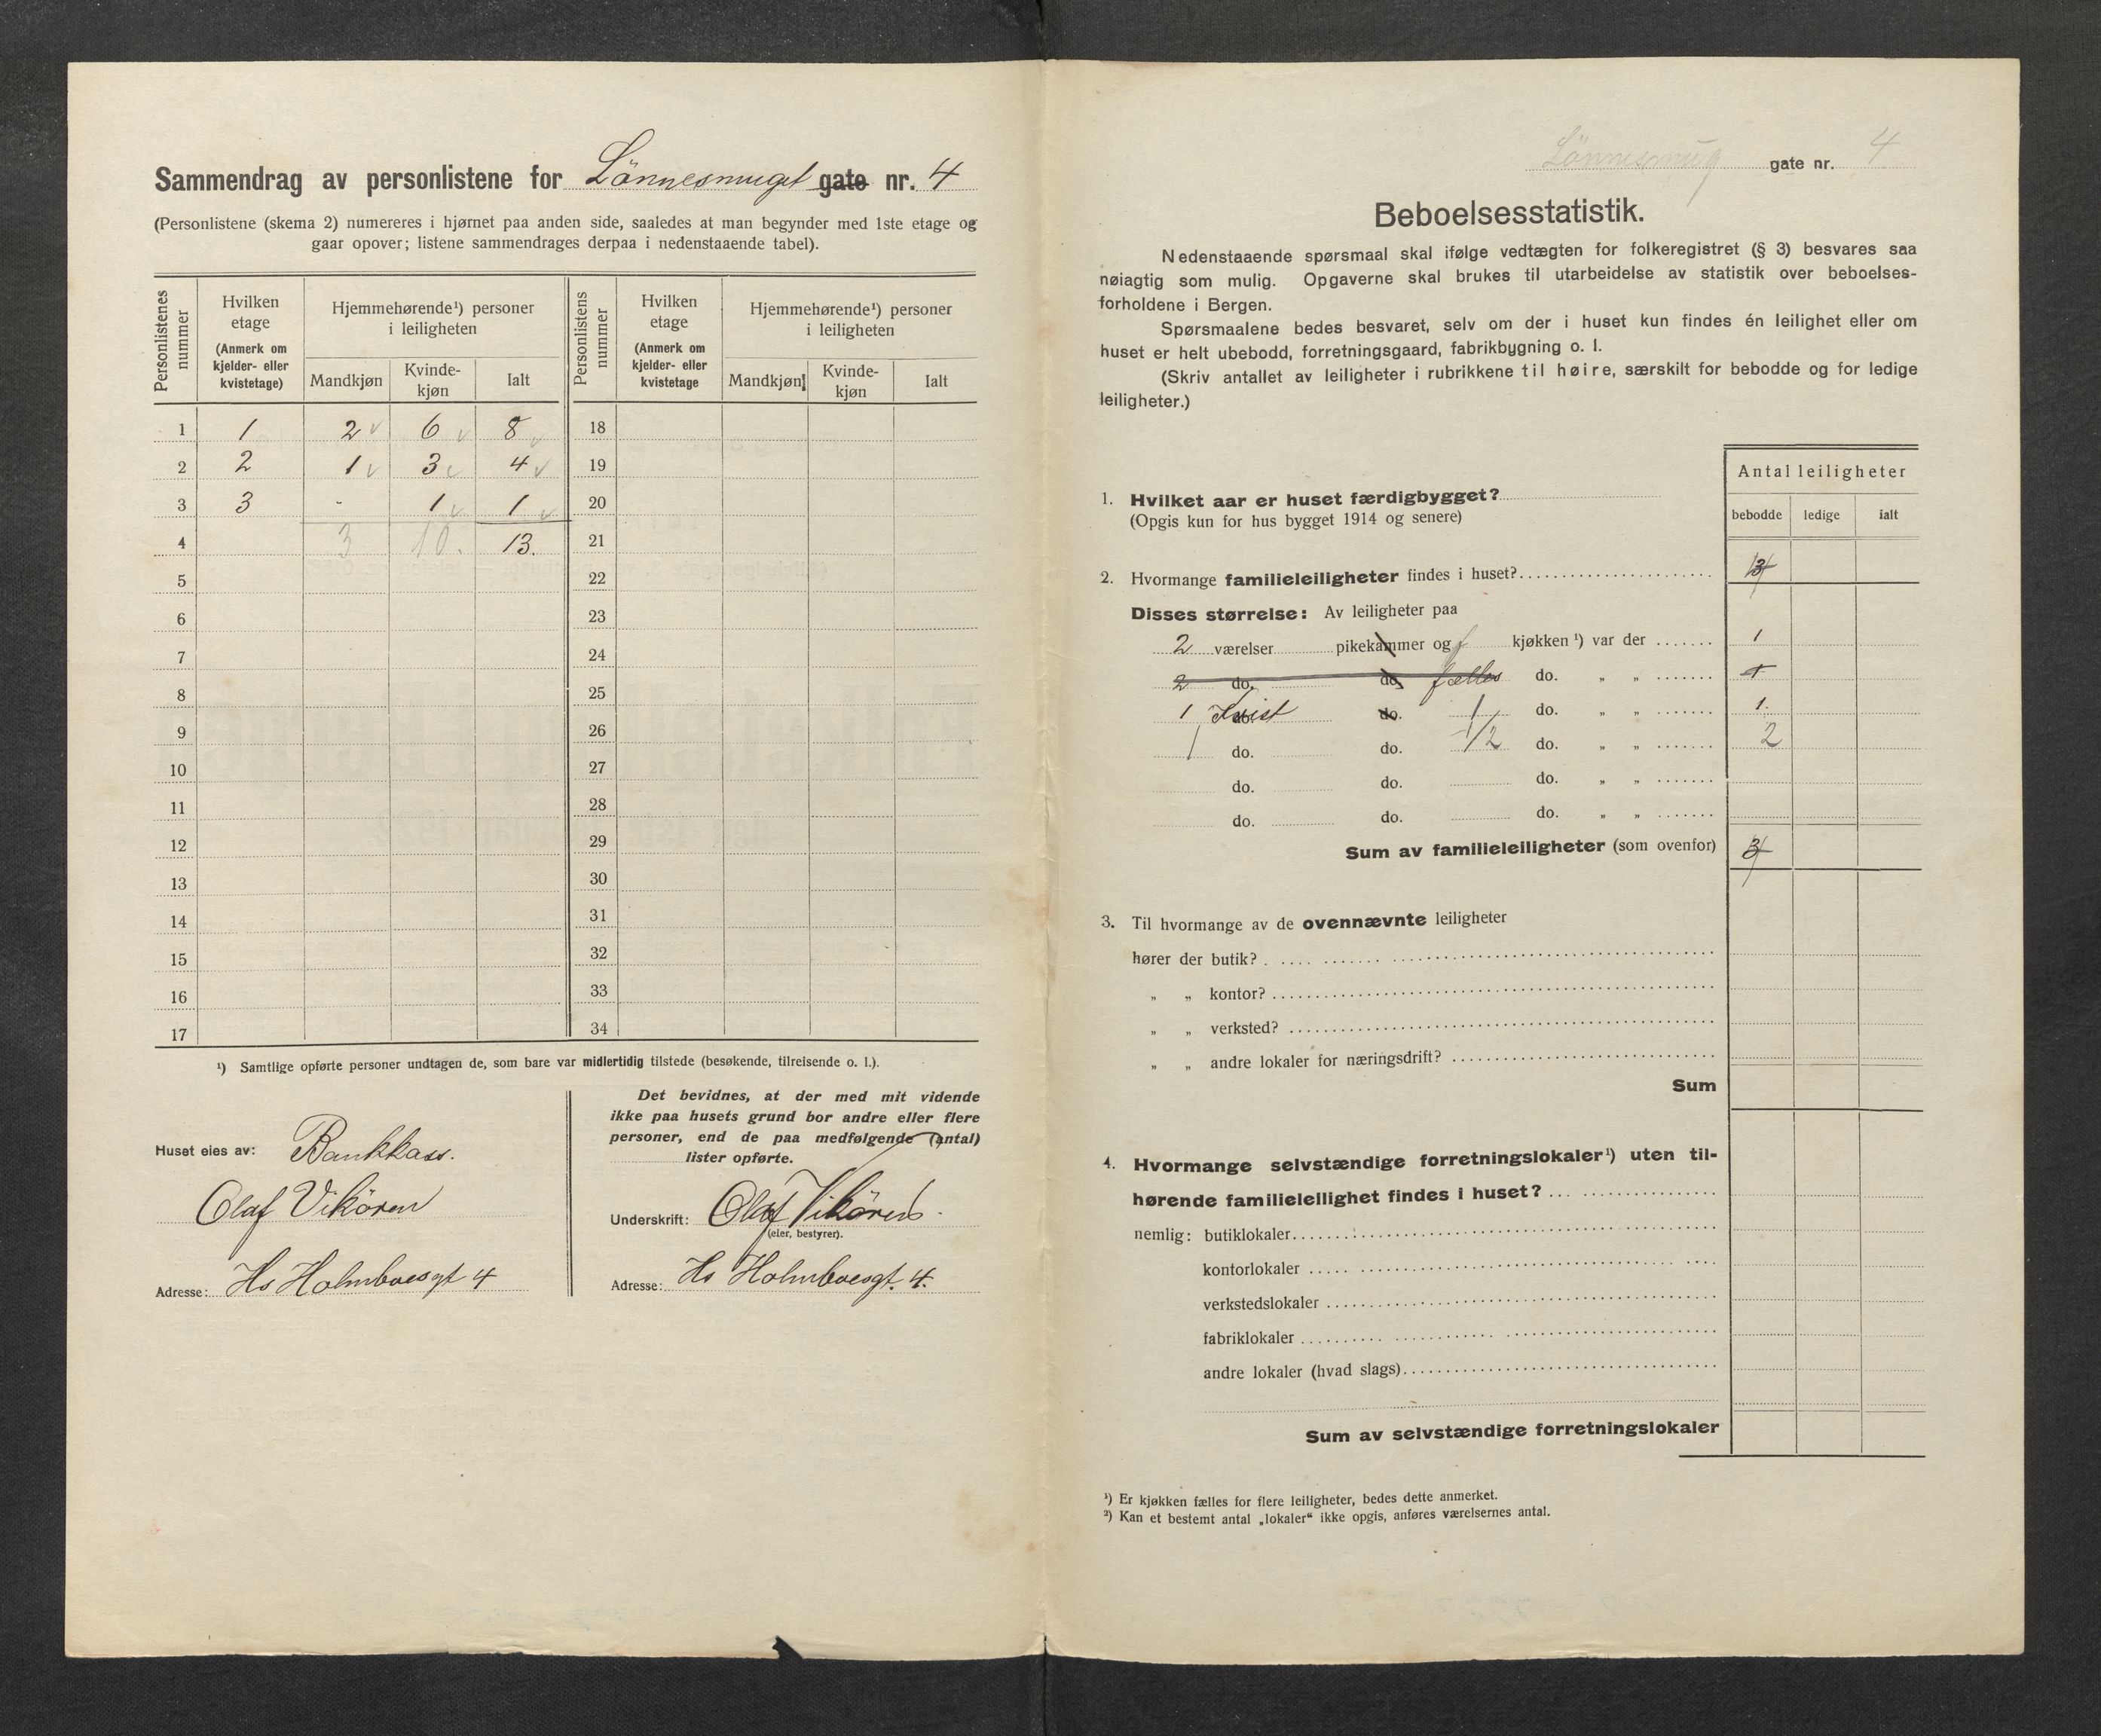 Sammendrag av personlistene for Lönnesmuget gate nr. 4
(Personlistene (skema 2) numereres i hjørnet paa anden side, saaledes at man begynder med 1ste etage og
gaar opover; listene sammendrages derpaa i nedenstaaende tabel).
Personlistenes nummer
Hvilken etage (Anmerk om kjelder- eller kvistetage)
Hjemmehørende¹) personer i leiligheten
Mandkjøn Kvinde-kjøn Ialt
Personlistens nummer
Hvilken etage (Anmerk om kjelder- eller kvistetage
Hjemmehørende¹) personer i leiligheten
Mandkjøn Kvinde-kjøn Ialt
1 1 2 6 8 18
2 2 1 3 4 19
3 3 - 1 1 20
4 3 10. 13. 21
5 22
6 23
7 24
8 25
9 26
10 27
11 28
12 29
13 30
14 31
15 32
16 33
17 34
¹) Samtlige opførte personer undtagen de, som bare var midlertidig tilstede (besøkende, tilreisende o. l.).
Huset eies av: Bankkass.
Olaf Vikören
Adresse: Hs Holmboesgt 4
Det bevidnes, at der med mit vidende
ikke paa husets grund bor andre eller flere
personer, end de paa medfølgende (antal)
lister opførte.
Underskrift: Olaf Vikören
(eier, bestyrer).
Adresse: Hs Holmboesgt. 4.
Lönnesmug gate nr. 4
Beboelsesstatistik.
Nedenstaaende spørsmaal skal ifølge vedtægten for folkeregistret (§ 3) besvares saa
nøiagtig som mulig. Opgaverne skal brukes til utarbeidelse av statistik over beboelses-
forholdene i Bergen.
Spørsmaalene bedes besvaret, selv om der i huset kun findes én leilighet eller om
huset er helt ubebodd, forretningsgaard, fabrikbygning o. l.
(Skriv antallet av leiligheter i rubrikkene til høire, særskilt for bebodde og for ledige
leiligheter.)
Antal leiligheter
bebodde ledige ialt
1. Hvilket aar er huset færdigbygget?
(Opgis kun for hus bygget 1914 og senere)
2. Hvormange familieleiligheter findes i huset?
Disses størrelse: Av leiligheter paa
2 værelser pikekammer og f kjøkken ¹) var der 1
2 do. do. fælles do. „ „ 1
1 Kvist do. do. 1 do. „ „ 1.
1 do. do. 1/2 do. „ „ 2
do. do. do. „ „
do. do. do. „ „
Sum av familieleiligheter (som ovenfor) 3
3. Til hvormange av de ovennævnte leiligheter
hører der butik?
„ „ kontor?
„ „ verksted?
„ „ andre lokaler for næringsdrift?
Sum
4. Hvormange selvstændige forretningslokaler¹) uten til-
hørende familieleilighet findes i huset?
nemlig: butiklokaler
kontorlokaler
verkstedslokaler
fabriklokaler
andre lokaler (hvad slags)
Sum av selvstændige forretningslokaler
¹) Er kjøkken fælles for flere leiligheter, bedes dette anmerket.
²) Kan et bestemt antal „lokaler“ ikke opgis, anføres værelsernes antal.